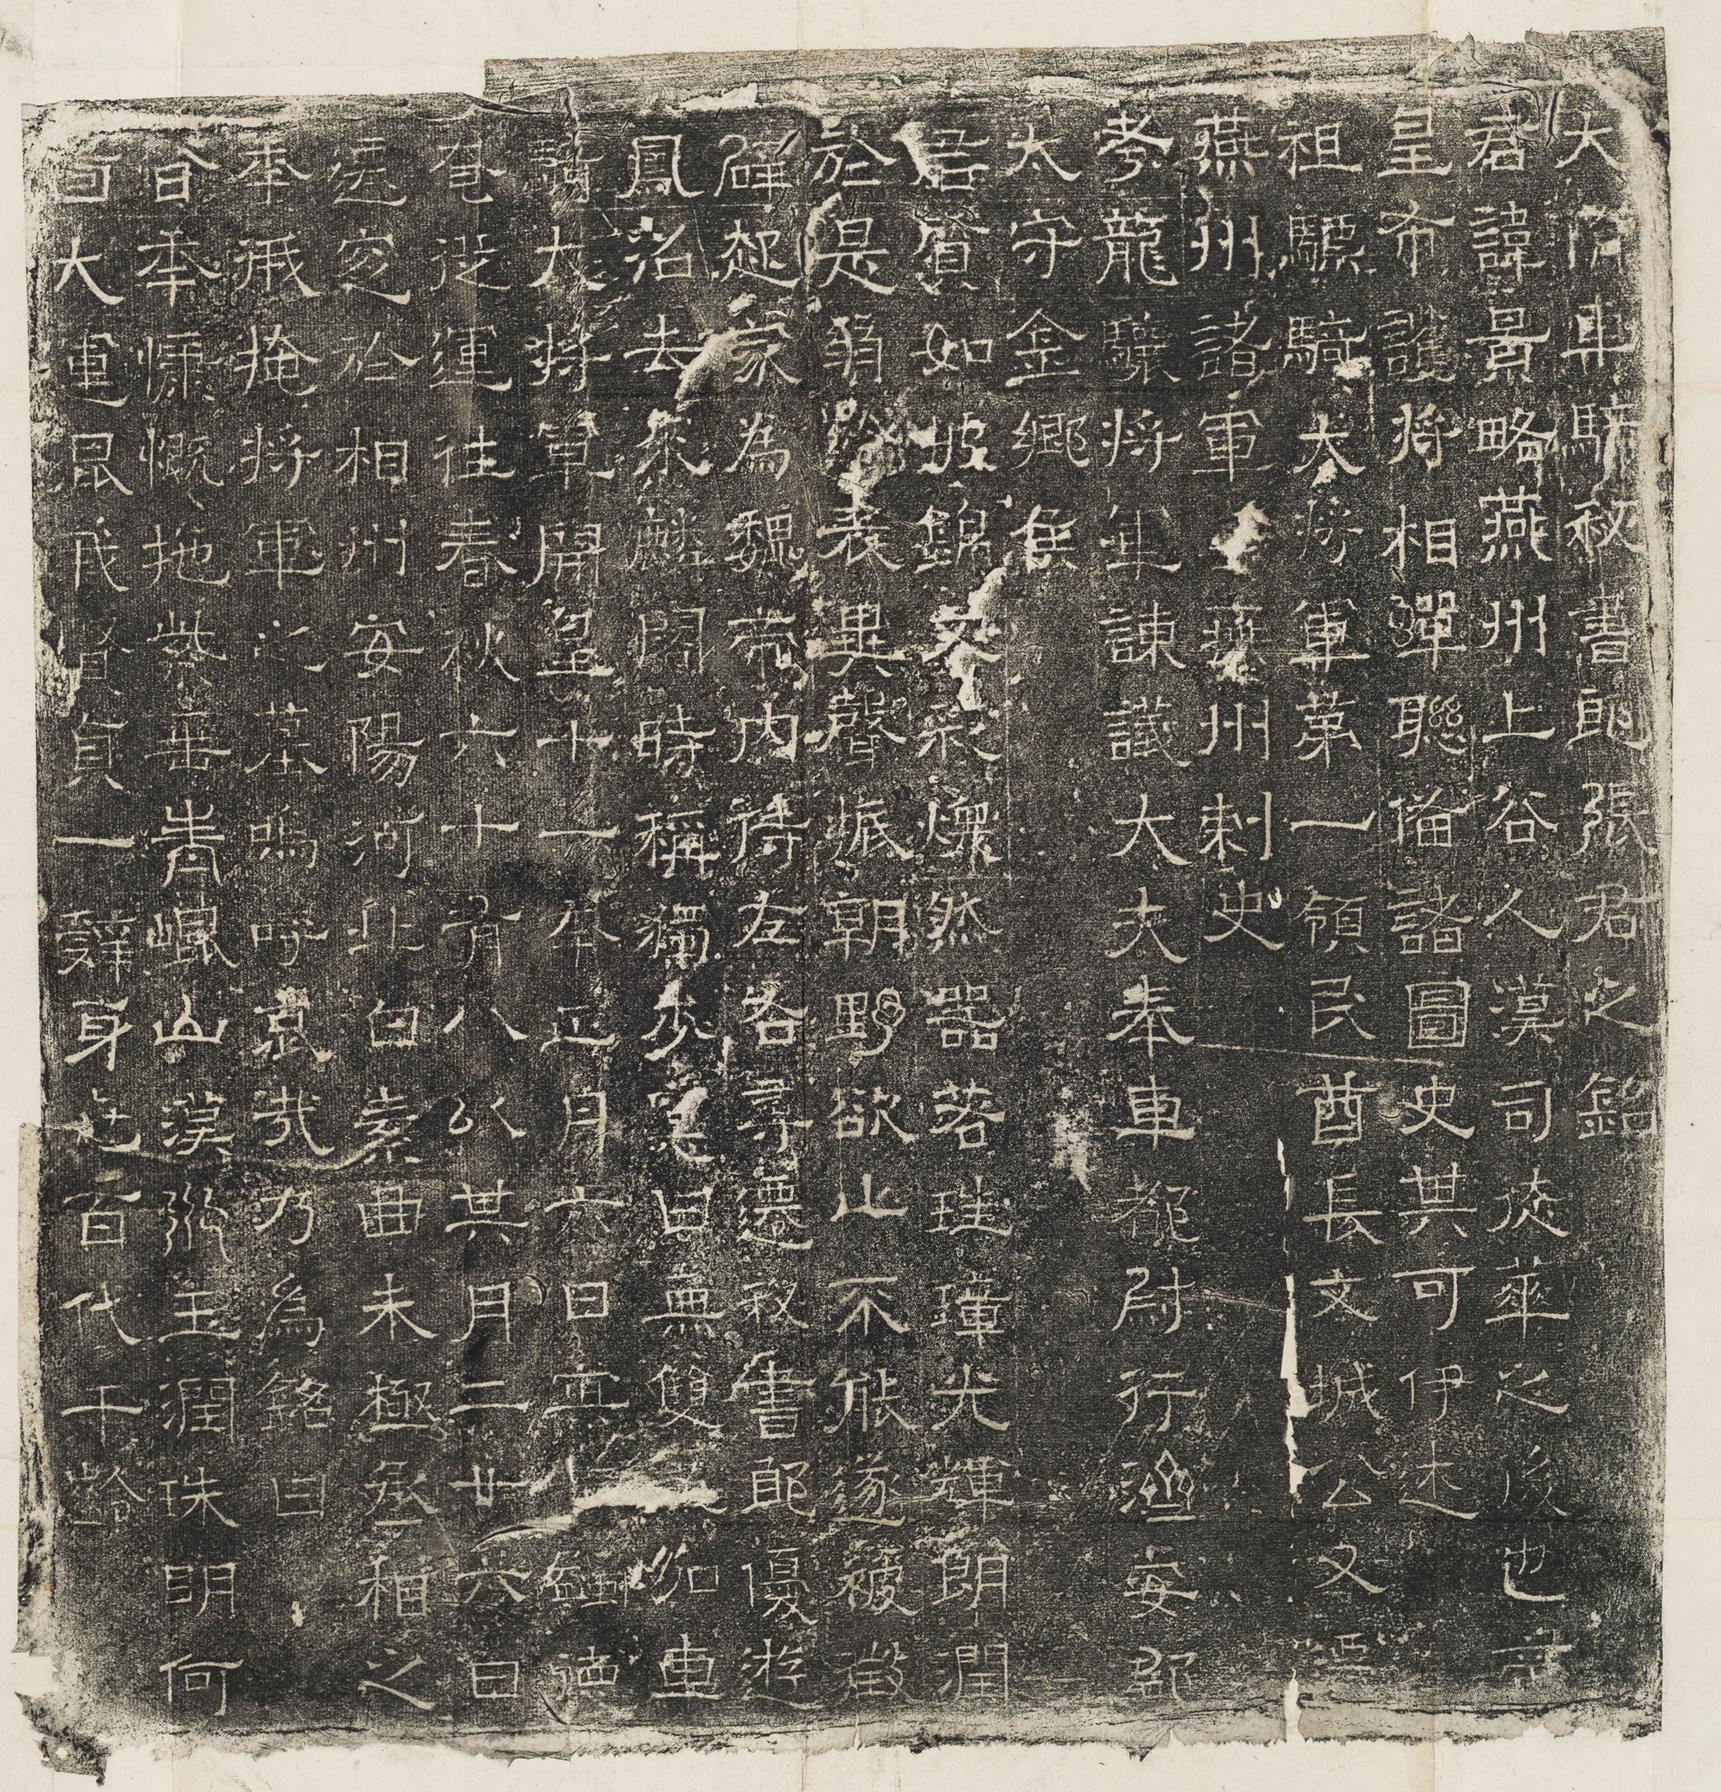 大隋車騎秘書郎張君之銘
君諱景略燕州上谷人漢司徒華之後也
皇 將相蟬聯俻諸圖史其可伊述
祖驃騎大將軍第一領民酋長文城公又
燕州諸軍事燕州刺史
考龍驤將軍諫議大夫奉車都尉行濟安郡
太守金鄉侯
君資如披錦文彩爛然器若珪璋光輝朗潤
於是羽儀表異聲振朝野欲止不能遂被徵
辟起家為魏帝內侍左右尋遷秘書郎優遊
鳳沼去來麟閣時稱獨步寔曰無雙又加車
騎大將軍開皇十一年正月六日
奄從運往春秋六十有八以其月二廿六日
遷窆於相州安陽河北白素曲未極丞相之
奉 掩將軍之墓嗚呼哀哉乃為銘曰
昔奉慷慨拖紫垂青崐山漢水玉潤珠明何
大運 我賢貞一辭身世百代千齡